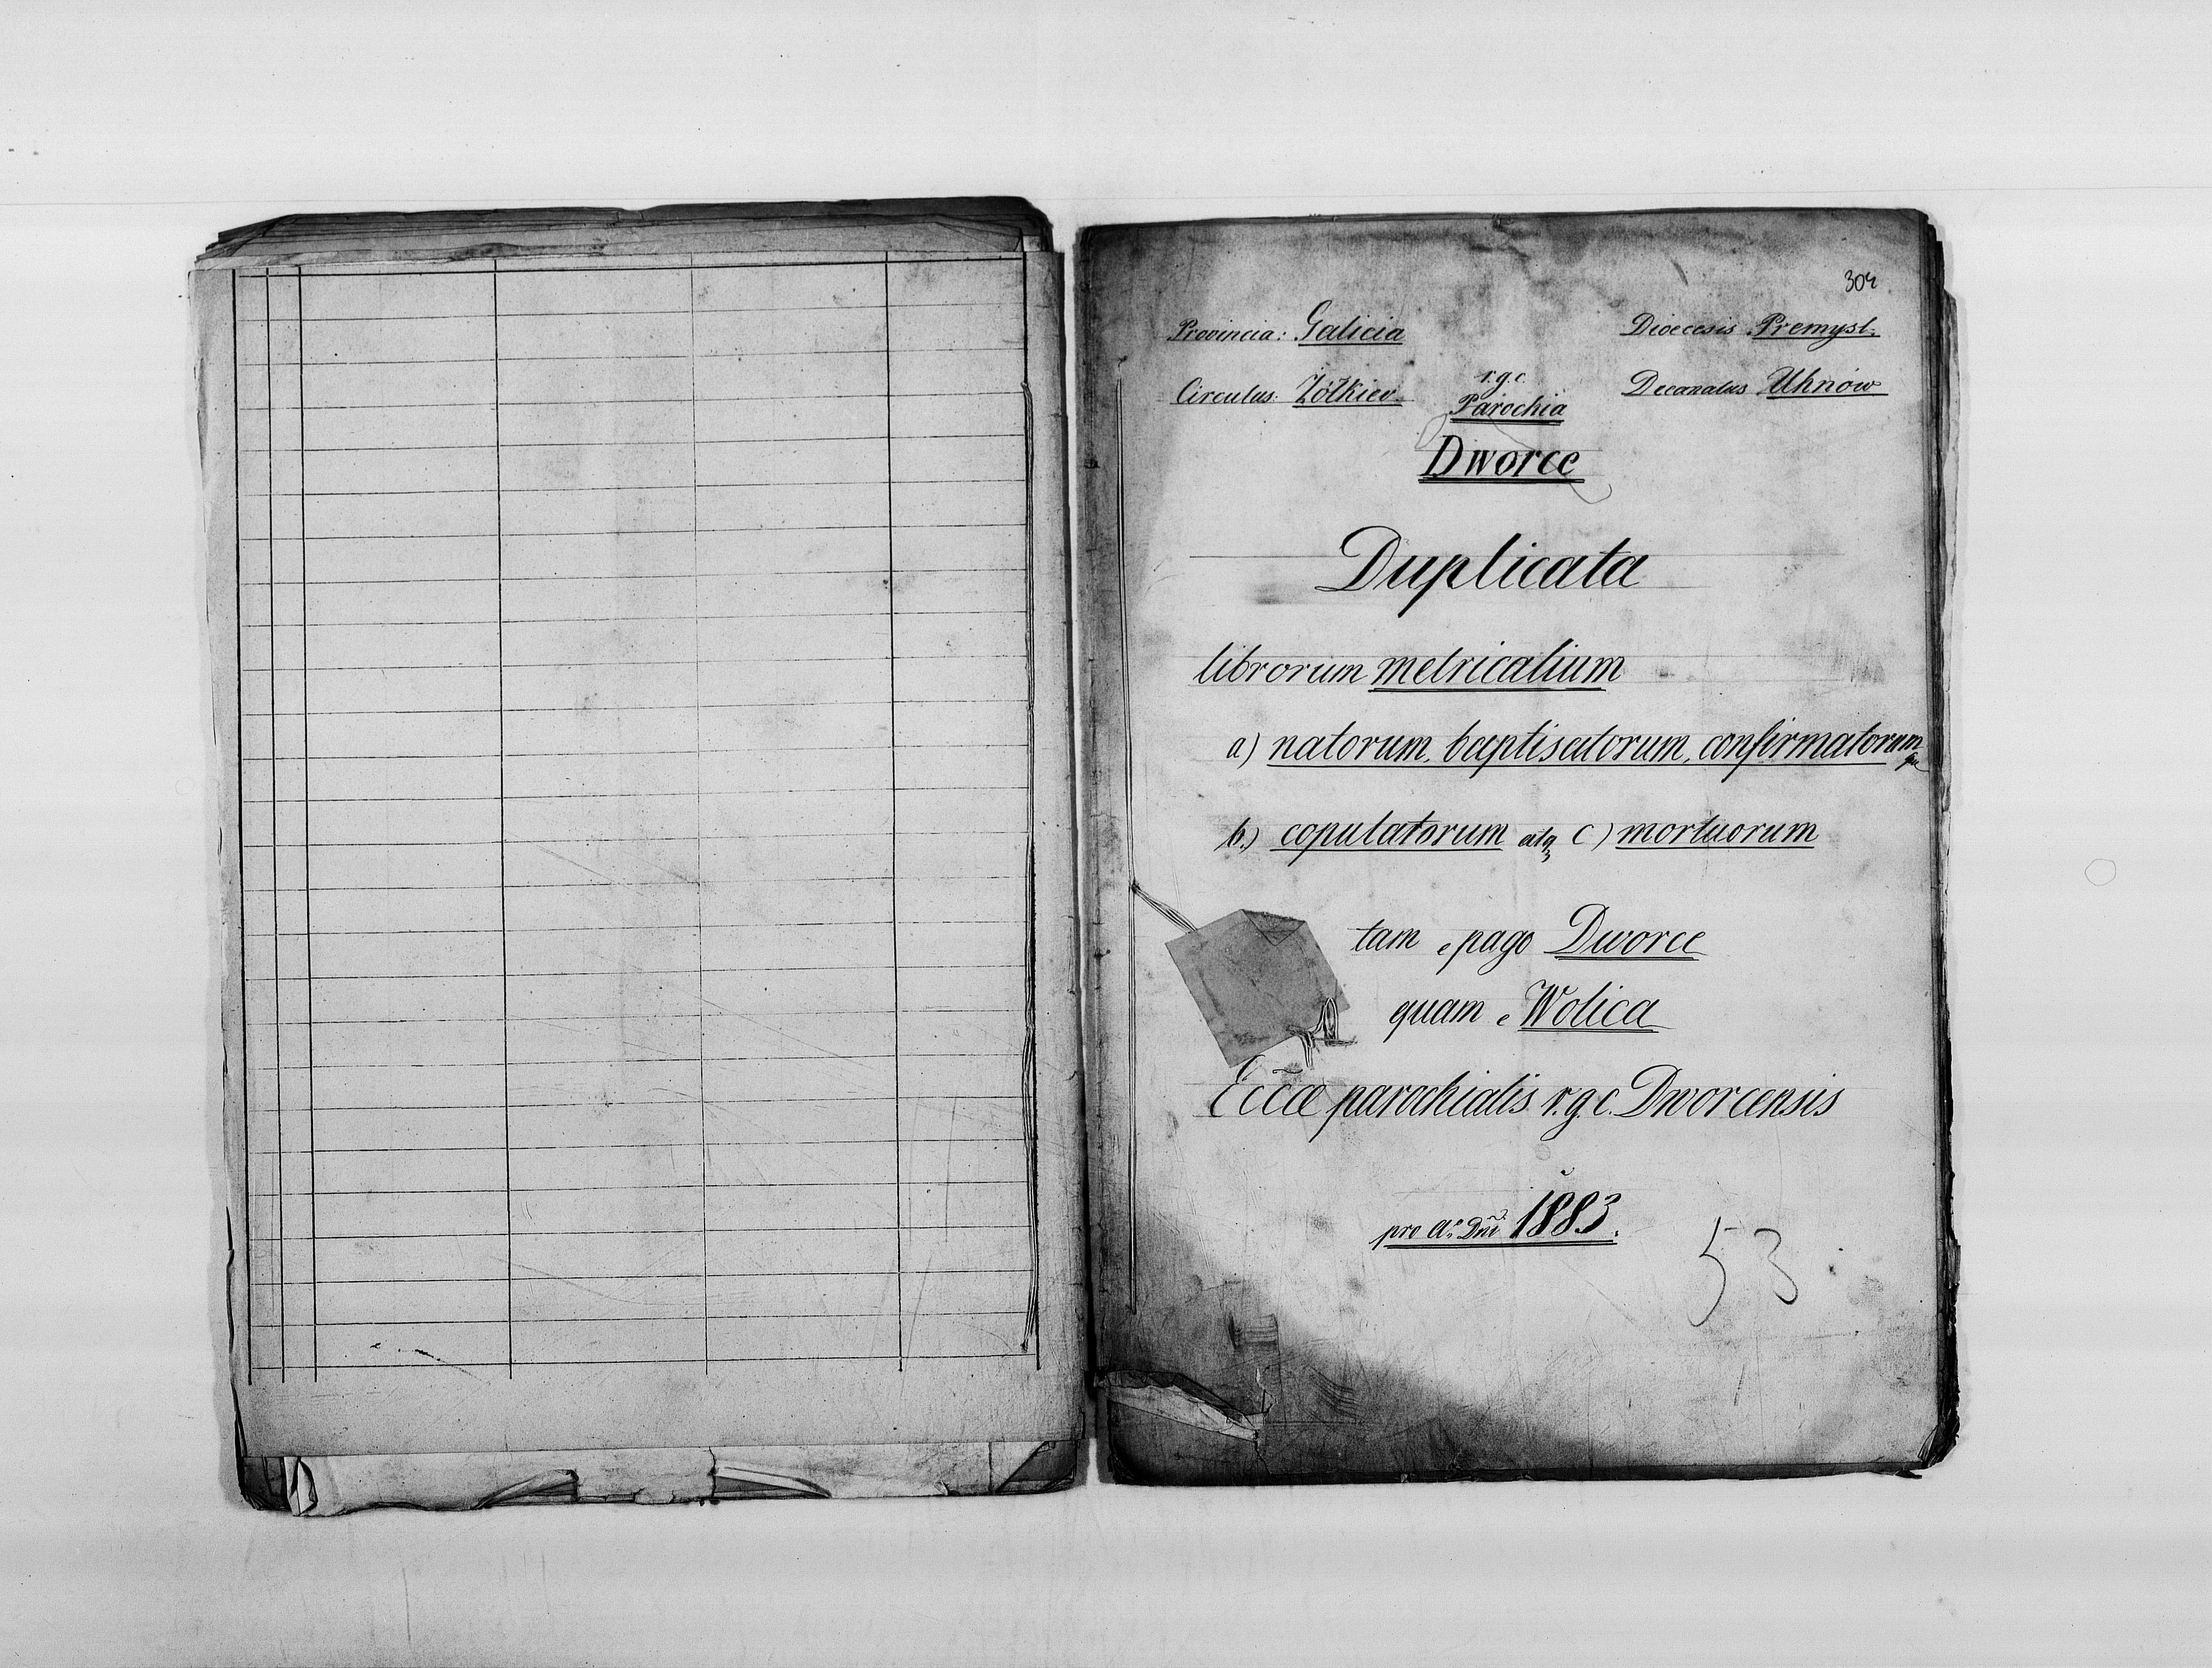 304
Provincia: Galicia
Dioecesis Premysl.
Circulus: Żółkiev
r.g.c.
Decanatus Uhnów
Parochia
Dworce
Duplicata
librorum metricalium
a) natorum, baptisatorum, confirmatorum que
b.) copulatorum atq c) mortuorum
tam e pago Dworce
quam e Wolica
Eccæ parochialis r.g.c. Dworcensis
pro Ao Dni 1883.
53